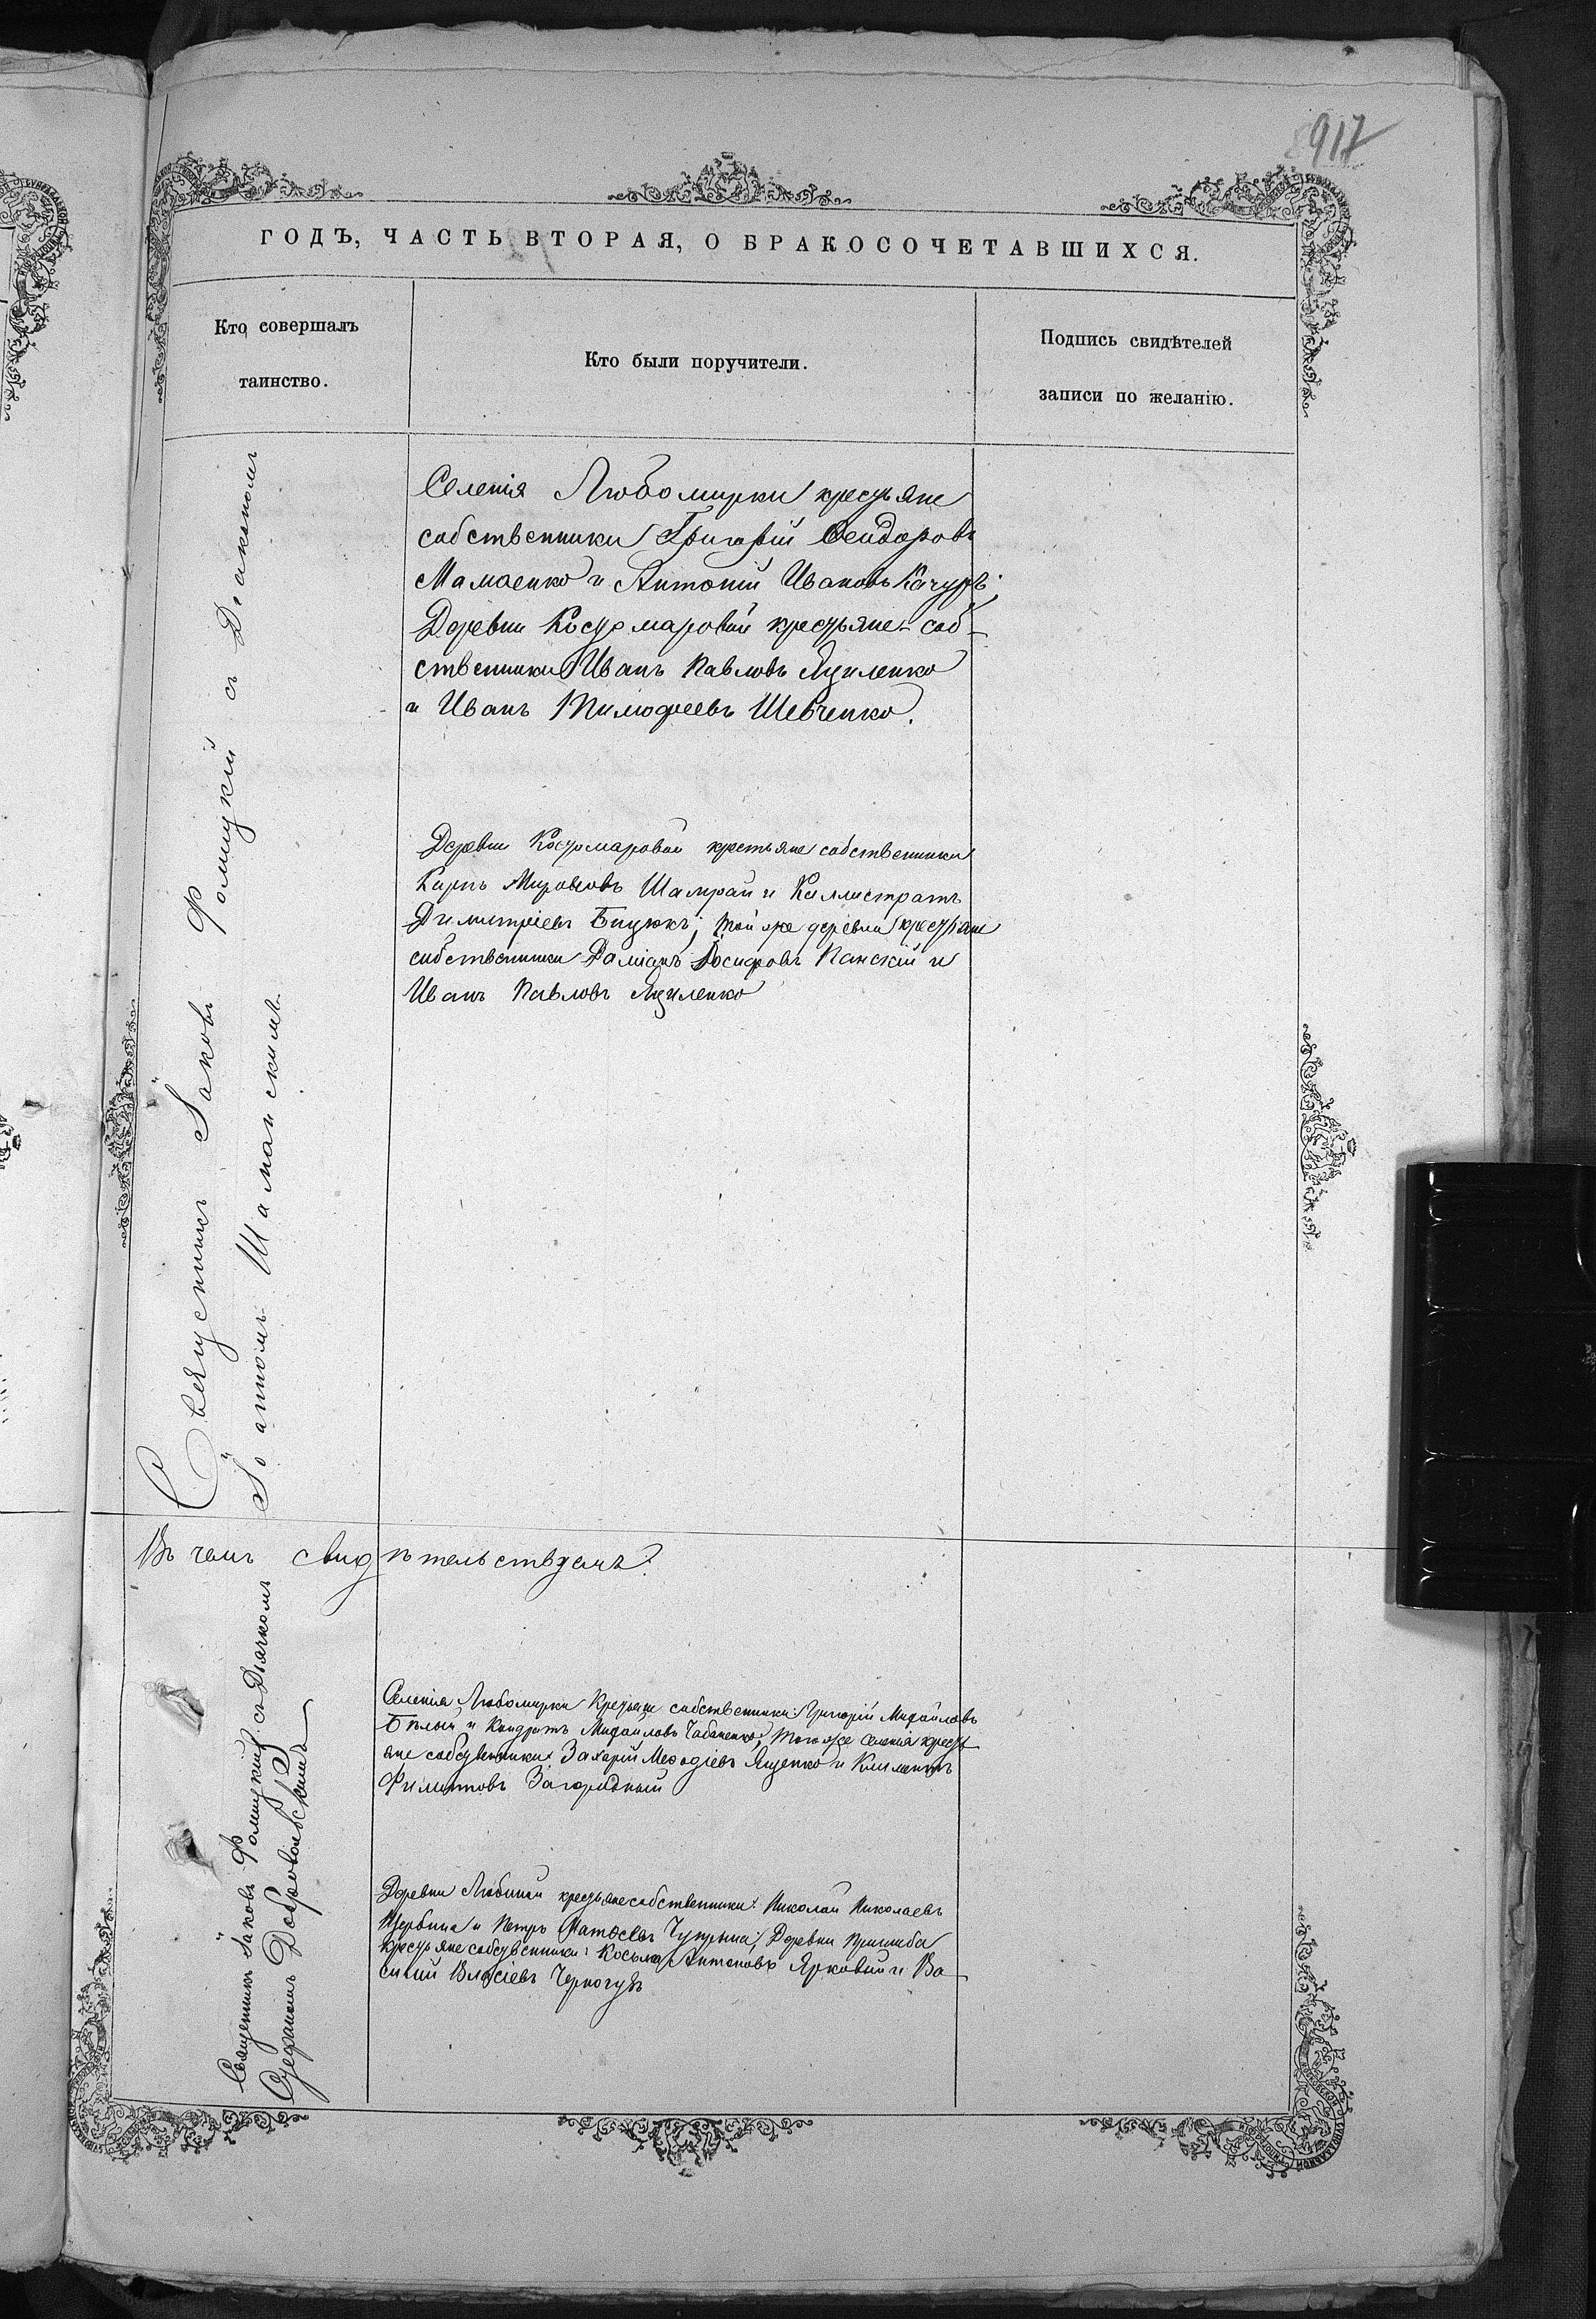 917
ГОДЪ, ЧАСТЬ ВТОРАЯ, О БРАКОСОЧЕТАВШИХСЯ.
Кто совершалъ
таинство.
Кто были поручители.
Подпись свидѣтелей
записи по желанію.
Священникъ Іаковъ Фомицкій съ Діакономъ
Іоанномъ Шаманскимъ
Селенія Любомирки крестьяне
собственники Григорій Ѳеодоровъ
Мамаенко и Антоній Ивановъ Качуръ;
Деревни Костомаровой крестьяне-соб-
ственники Иванъ Павловъ Яциленко
и Иванъ Тимоѳеевъ Шевченко.
Деревни Костомаровой крестьяне собственники
Карпъ Мироновъ Шамрай и Каллистратъ
Димитріевъ Бицюкъ; той же деревни крестьяне
собственники Даміанъ Іосифовъ Панскій и
Иванъ Павловъ Яциленко
Въ чемъ свидѣтельствуемъ:
Священникъ Іаковъ Фомицкій съ Дьячкомъ
Стефаномъ Добровольскимъ
Селенія Любомирки Крестьяне собственники: Григорій Михайловъ
Бѣлый и Кондратъ Михайловъ Чабаненко; того же селенія кресть
яне собственники: Захарій Меѳодіевъ Яценко и Климентъ
Филиповъ Загородный
Деревни Любиной крестьяне собственники: Николай Николаевъ
Щербина и Петръ Матѳеевъ Чуприна; Деревни Пришиба
крестьяне собственники: Косьма Антоновъ Ярковый и Ва
силій Власіевъ Черногузъ